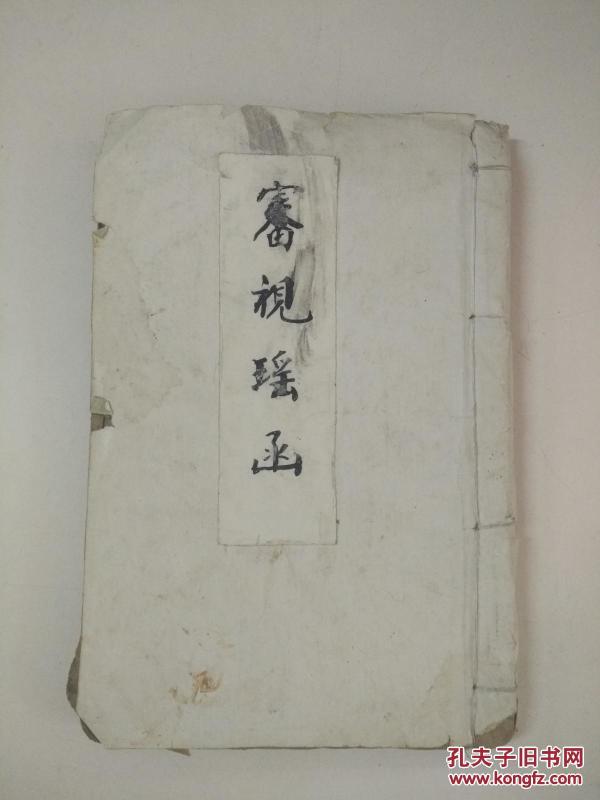 審視瑶函
孔夫子旧书网
www.kongfz.com